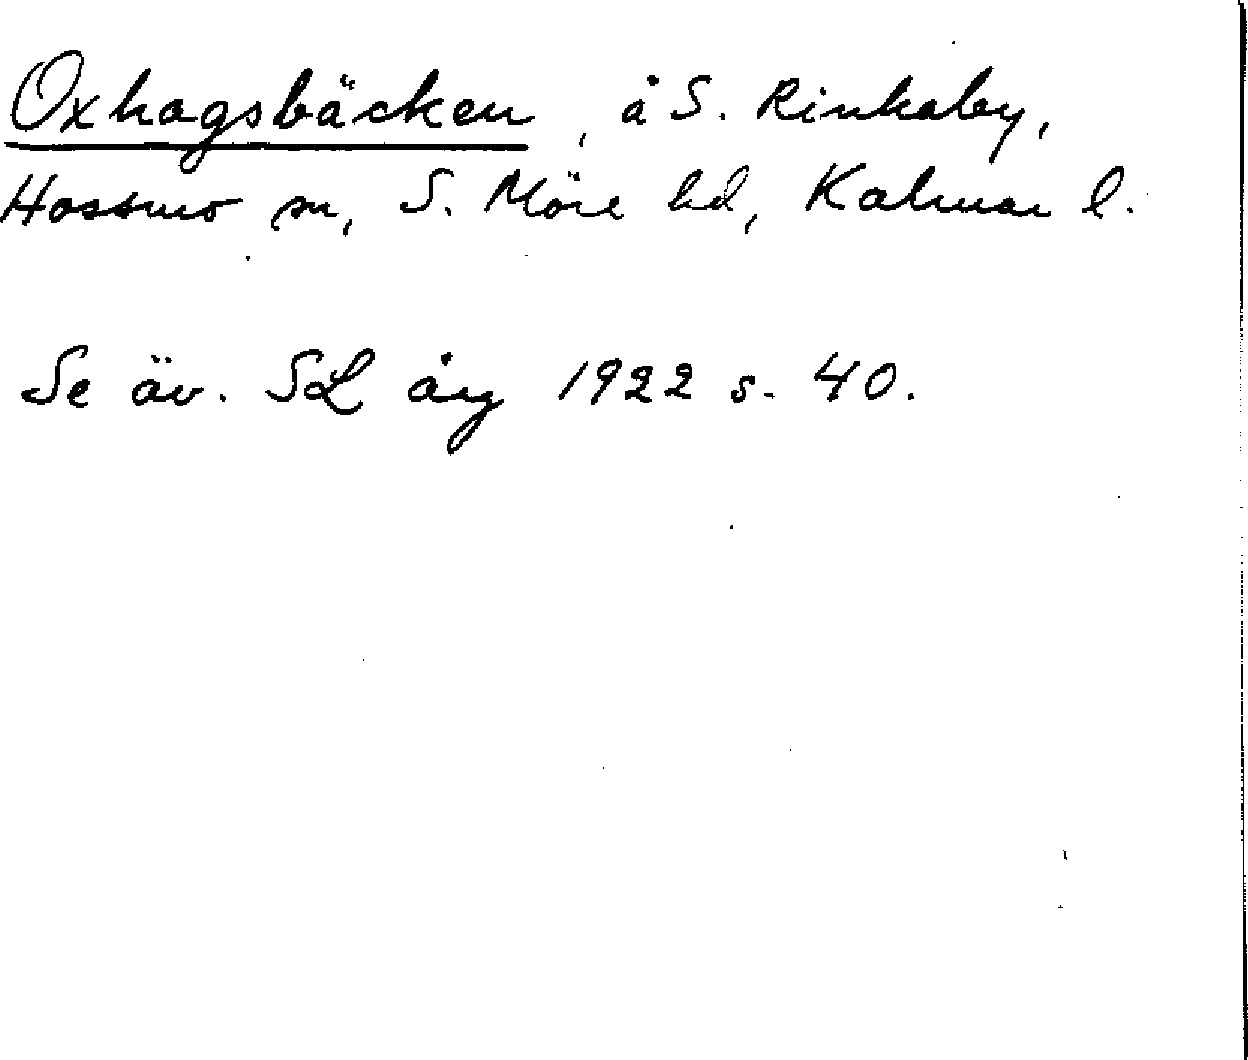 Oxhagsbäcken, å S. Rinkaby,
Hossmo sn, S. Möre hd, Kalmar l.
Se äv. SL årg 1922 s. 40.